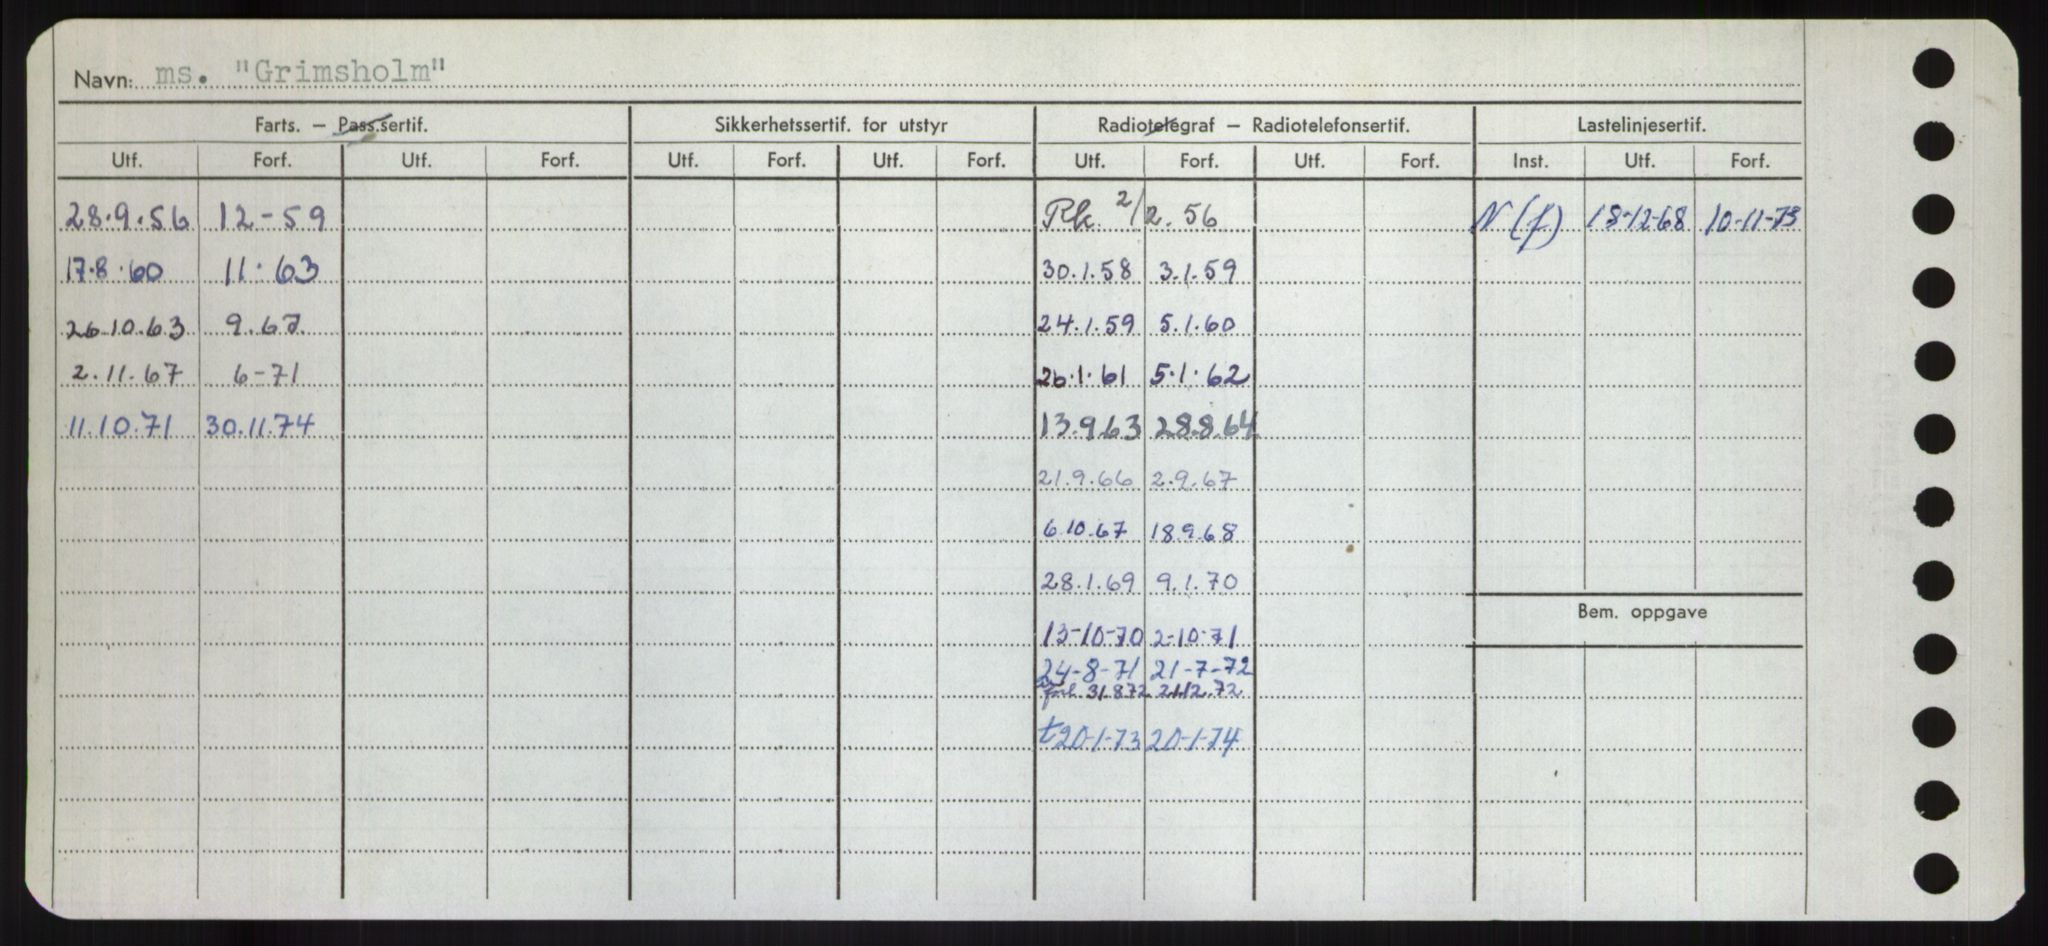 Navn: ms. "Grimsholm"
Farts. – Pass.sertif. Sikkerhetssertif. for utstyr Radiotelegraf – Radiotelefonsertif. Lastelinjesertif.
Utf. Forf. Utf. Forf. Utf. Forf. Utf. Forf. Utf. Forf. Utf. Forf. Inst. Utf. Forf.
28.9.56 12-59 Pk. 2/2.56 N (f) 18-12-68 10-11-73
17.8.60 11.63 30.1.58 3.1.59
26.10.63 9.67 24.1.59 5.1.60
2.11.67 6-71 26.1.61 5.1.62
11.10.71 30.11.74 13.9.63 28.8.64
21.9.66 2.9.67
6.10.67 18.9.68
28.1.69 9.1.70
Bem. oppgave
13-10-70 2-10-71
24-8-71 21-7-72
forl 31.8.72 21.12.72
t 20-1-73 20-1-74